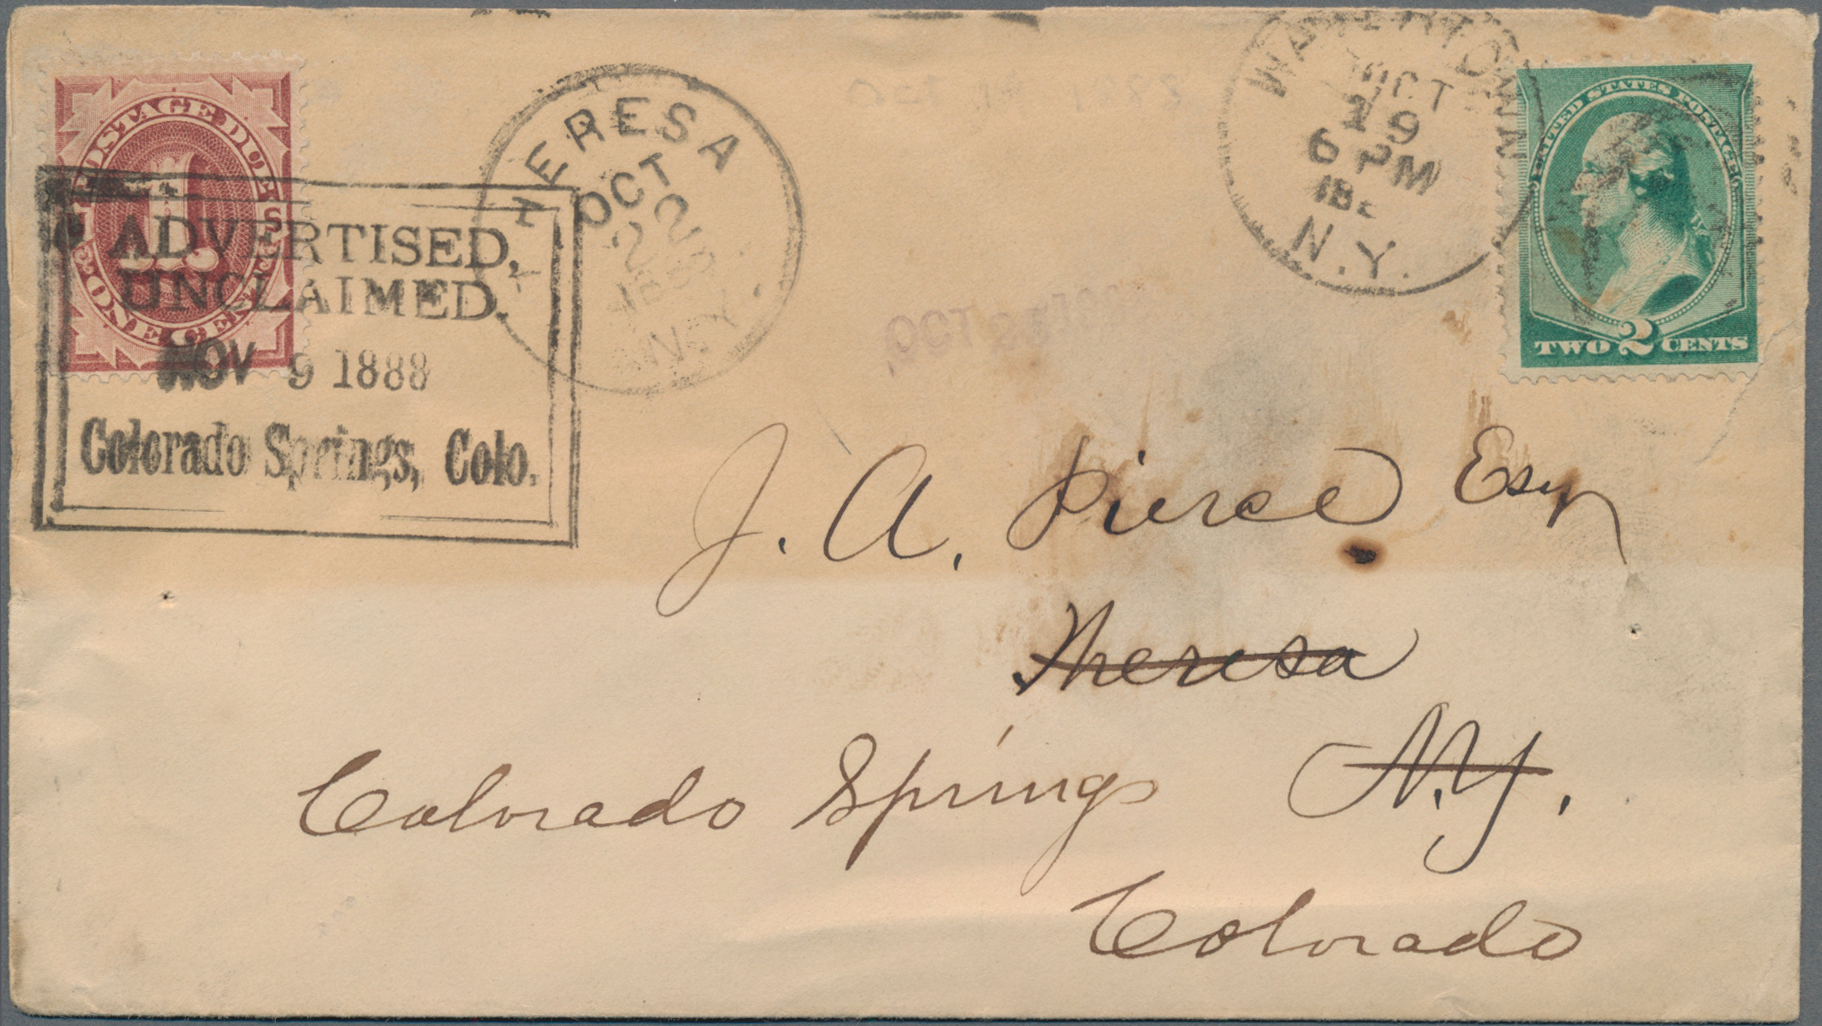 POSTAGE DUE
1
ONE CENT
ADVERTISED,
UNCLAIMED.
NOV 9 1888
Colorado Springs, Colo.
THERESA
OCT
22
N.Y.
WATERTOWN
OCT
19
6 PM
N.Y.
UNITED STATES POSTAGE
TWO 2 CENTS
OCT
J. A. Pierce Esq
Theresa
N.Y.
Colorado Springs
Colorado